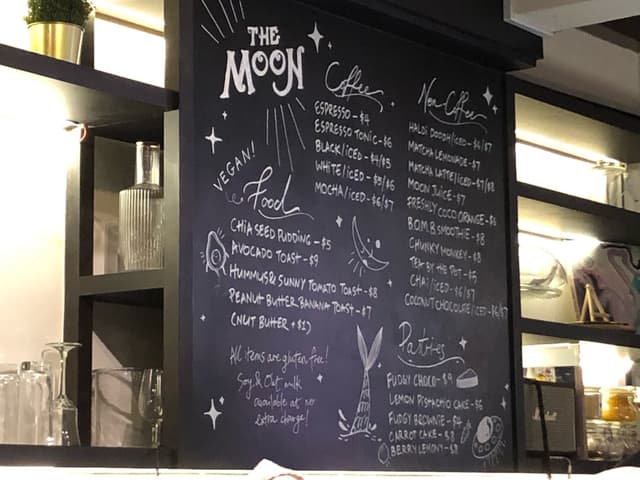 THE
MOON
Coffee
ESPRESSO - $4
ESPRESSO TONIC - $6
BLACK/ICED - $4/$5
WHITE/ICED - $5/$6
MOCHA/ICED - $6/$7
Non-Coffee
HALDI DOODH/ICED - $6/$7
MATCHA LEMONADE - $7
MATCHA LATTE/ICED - $7/$8
MOON JUICE - $7
FRESHLY COCO ORANGE - $6
B.O.M.B SMOOTHIE - $8
CHUNKY MONKEY - $8
TEA BY THE POT - $6
CHAI/ICED - $6/$7
COCONUT CHOCOLATE/ICED - $6/$7
VEGAN!
Food
CHIA SEED PUDDING - $5
AVOCADO TOAST - $9
HUMMUS & SUNNY TOMATO TOAST - $8
PEANUT BUTTER BANANA TOAST - $7
(NUT BUTTER + $1)
All items are gluten free!
Soy & Oat milk
available at no
extra charge!
Pastries
FUDGY CHOCO - $9
LEMON PISTACHIO CAKE - $6
FUDGY BROWNIE - $4
CARROT CAKE - $8
BERRY LEMONY - $8
Marshall